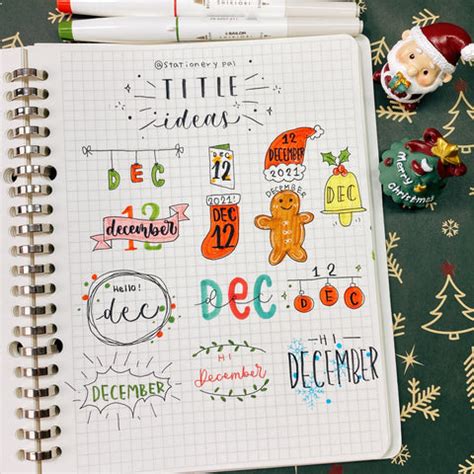 @stationery pal
TITLE
ideas
DEC
12
12
DECEMBER
2021
DEC
12
december
2021
DEC
12
DECEMBER
Hello!
dec
DEC
dec
12
DEC
DECEMBER
Hi
December
HI
DECEMBER
Merry
Christmas